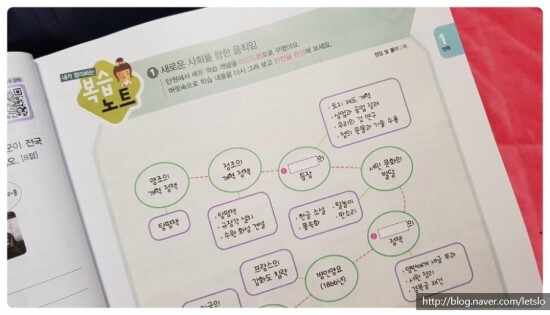 내가 정리하는
복습
노트
1 새로운 사회를 향한 움직임
단원에서 배운 학습 개념을 마인드맵으로 꾸몄어요.
머릿속으로 학습 내용을 다시 그려 보고 빈칸을 완성해 보세요.
정답 및 풀이 2쪽
1
단원
모이 전국
오. [8점]
• 토지 제도 개혁
• 상업과 공업 장려
• 우리의 것 연구
• 청의 문물과 기술 수용
영조의
개혁 정책
정조의
개혁 정책
1 의
등장
서민 문화의
발달
탕평책
• 탕평책
• 규장각 설치
• 수원 화성 건설
• 한글 소설 • 탈놀이
• 풍속화 • 판소리
2 의
정책
프랑스의
강화도 침략
병인양요
(1866년)
• 양반에게 세금 부과
• 서원 정리
• 경복궁 재건
미국의
http://blog.naver.com/letslo